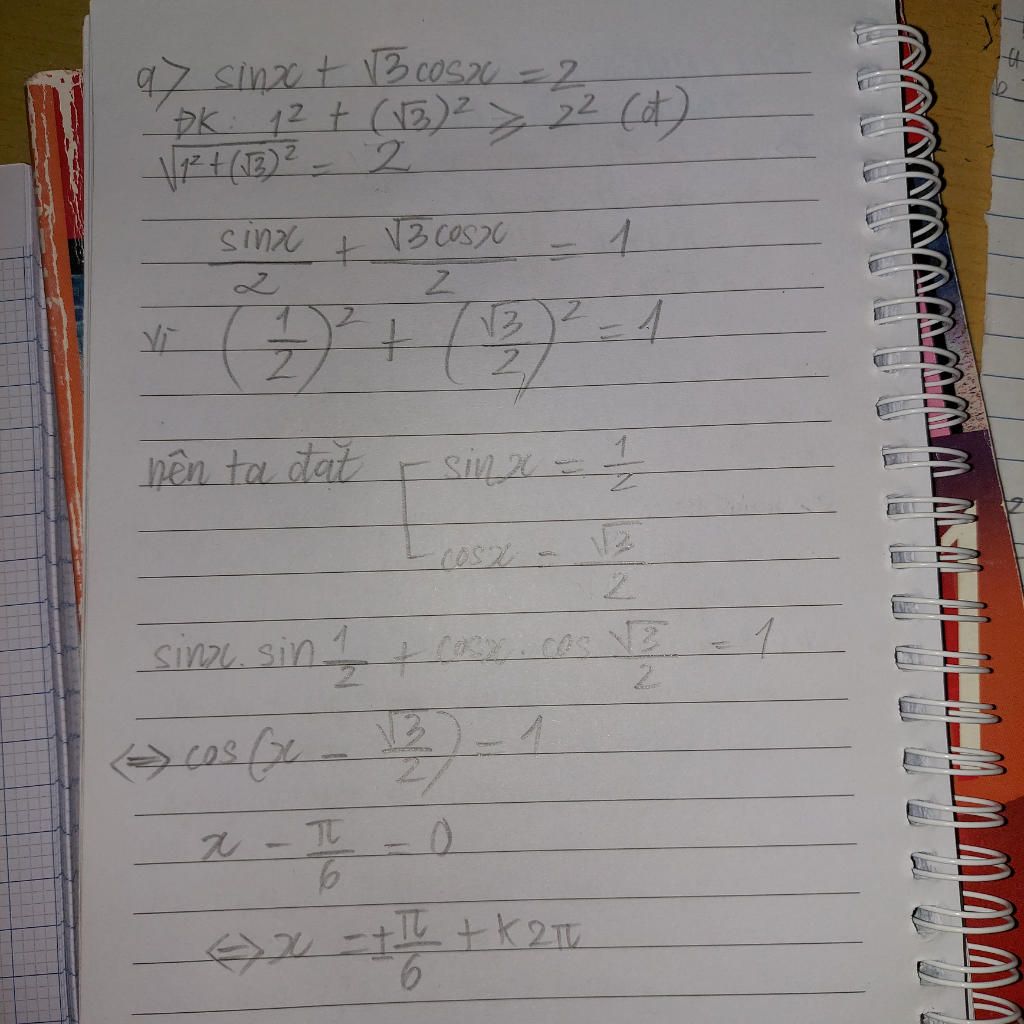 a> sinx + √3 cosx = 2
ĐK: 1² + (√3)² ⩾ 2² (đ)
√(1² + (√3)²) = 2
sinx/2 + √3cosx/2 = 1
vì (1/2)² + (√3/2)² = 1
nên ta đặt [ sinx = 1/2
cosx = √3/2
sinx. sin 1/2 + cosx. cos √3/2 = 1
⇔ cos(x - √3/2) = 1
x - π/6 = 0
⇔ x = ± π/6 + k2π